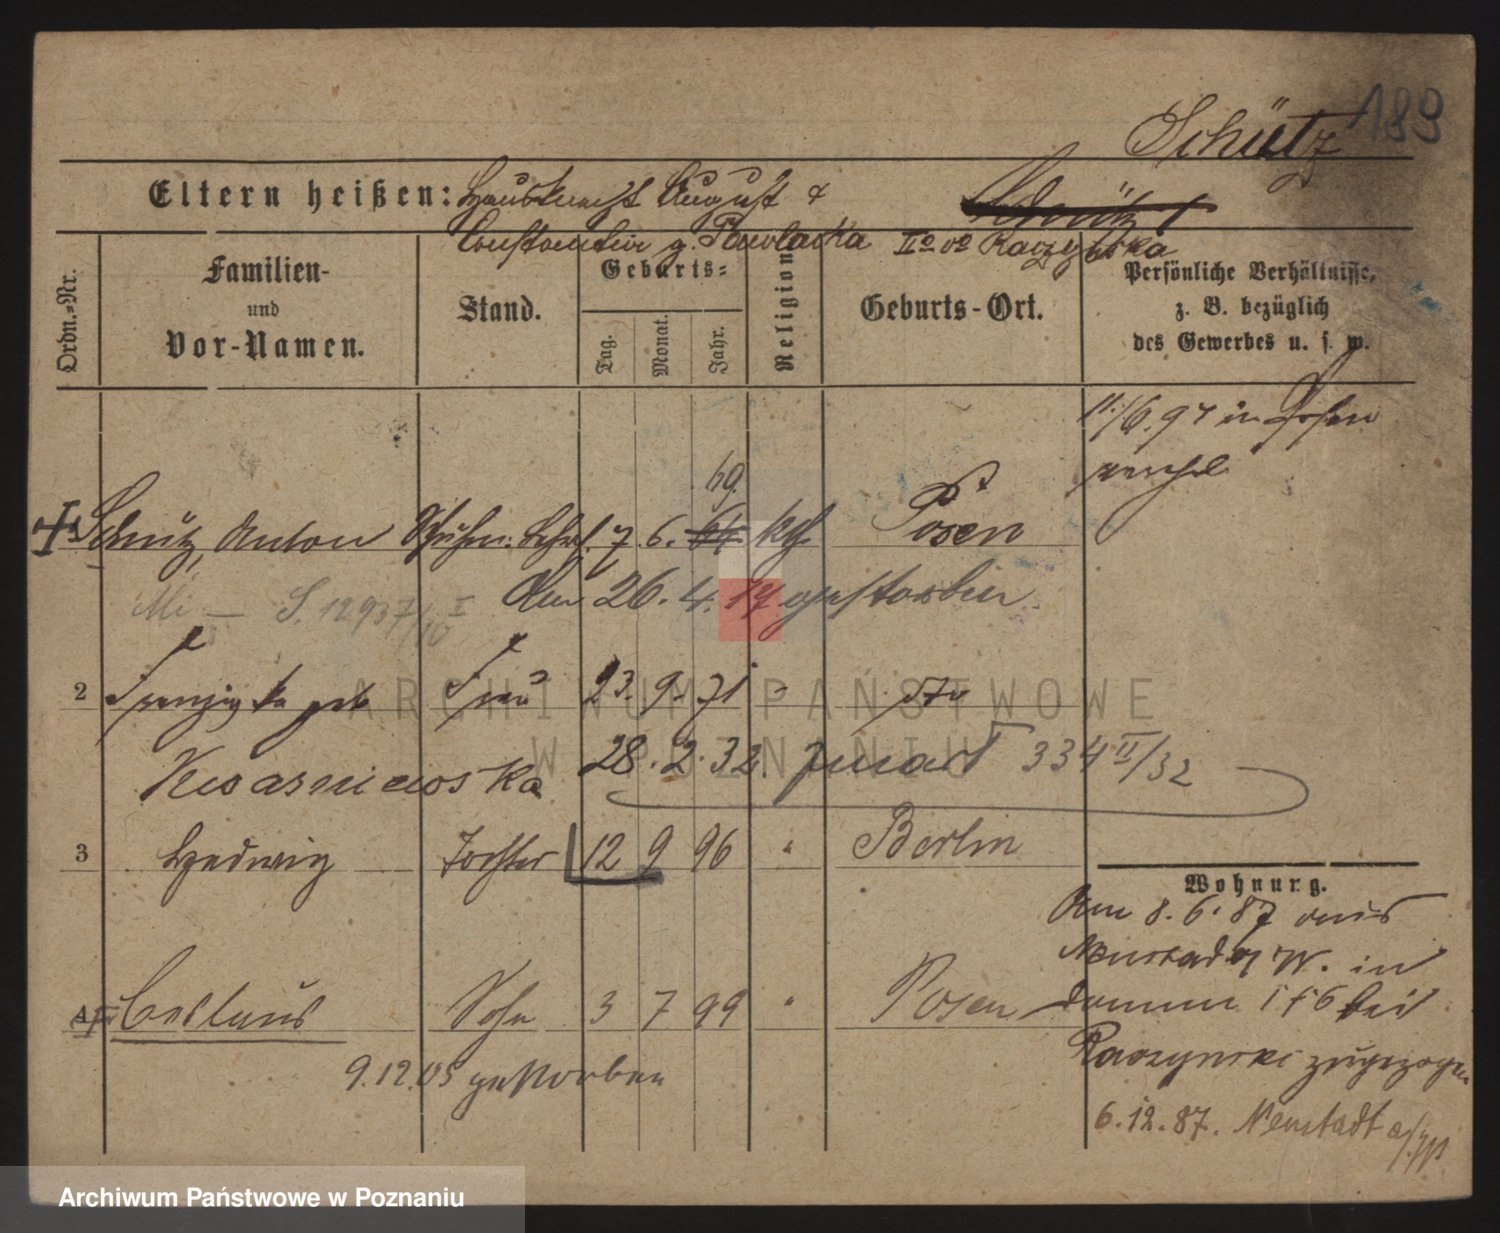 Schütz 189
Eltern heißen: Hausknecht August &
Constantia g. Pawlacka IIo vo Raczyńska
Ordn.-Nr.
Familien-
und
Vor-Namen.
Stand.
Geburts-
Tag.
Monat.
Jahr.
Religion
Geburts-Ort.
Persönliche Verhältnisse,
z. B. bezüglich
des Gewerbes u. s. w.
11./6.97 in Posen
verehel.
69.
1 Schütz, Anton 7. 6. 64 kth. Posen
Am 26. 4. 19 gestorben
S. 12937/10 I
2 Franziska geb. Frau 23. 9. 71 " dto
Kwasniewska 28. 2. 32. 334 II/32
3 Hedwig Tochter 12 9 96 " Berlin
Wohnung.
Am 8. 6. 87 aus
Neustadt a/W. in
Damm 1 f 6 bei
4 Ceslaus Sohn 3 7 99 " Posen
Raczynski zugezogen
9.12.05 gestorben
6.12.87. Neustadt a/W.
ARCHIWUM PAŃSTWOWE
W POZNANIU
Archiwum Państwowe w Poznaniu